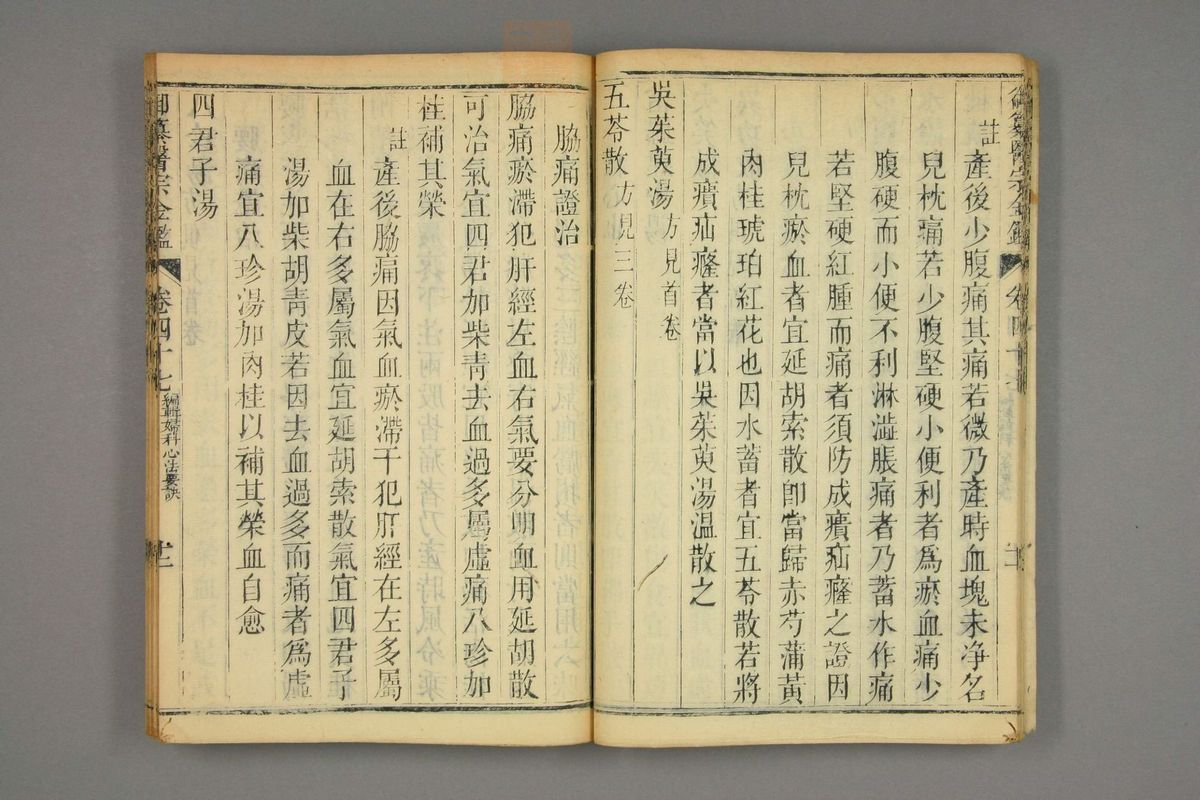 註
產後少腹痛其痛若微乃產時血塊未净名
兒枕痛若少腹堅硬小便利者爲瘀血痛少
腹硬而小便不利淋澁脹痛者乃蓄水作痛
若堅硬紅腫而痛者須防成㿉疝癃之證因
兒枕瘀血者宜延胡索散卽當歸赤芍蒲黃
肉桂琥珀紅花也因水蓄者宜五苓散若將
成㿉疝癃者當以吳茱萸湯温散之
吳茱萸湯方見首卷
五苓散方見三卷
脇痛證治
脇痛瘀滯犯肝經左血右氣要分明血用延胡散
可治氣宜四君加柴靑去血過多屬虛痛八珍加
桂補其榮
註
產後脇痛因氣血瘀滯干犯肝經在左多屬
血在右多屬氣血宜延胡索散氣宜四君子
湯加柴胡靑皮若因去血過多而痛者爲虛
痛宜八珍湯加肉桂以補其榮血自愈
四君子湯
御纂醫宗金鑑 卷四十七 編輯婦科心法要訣